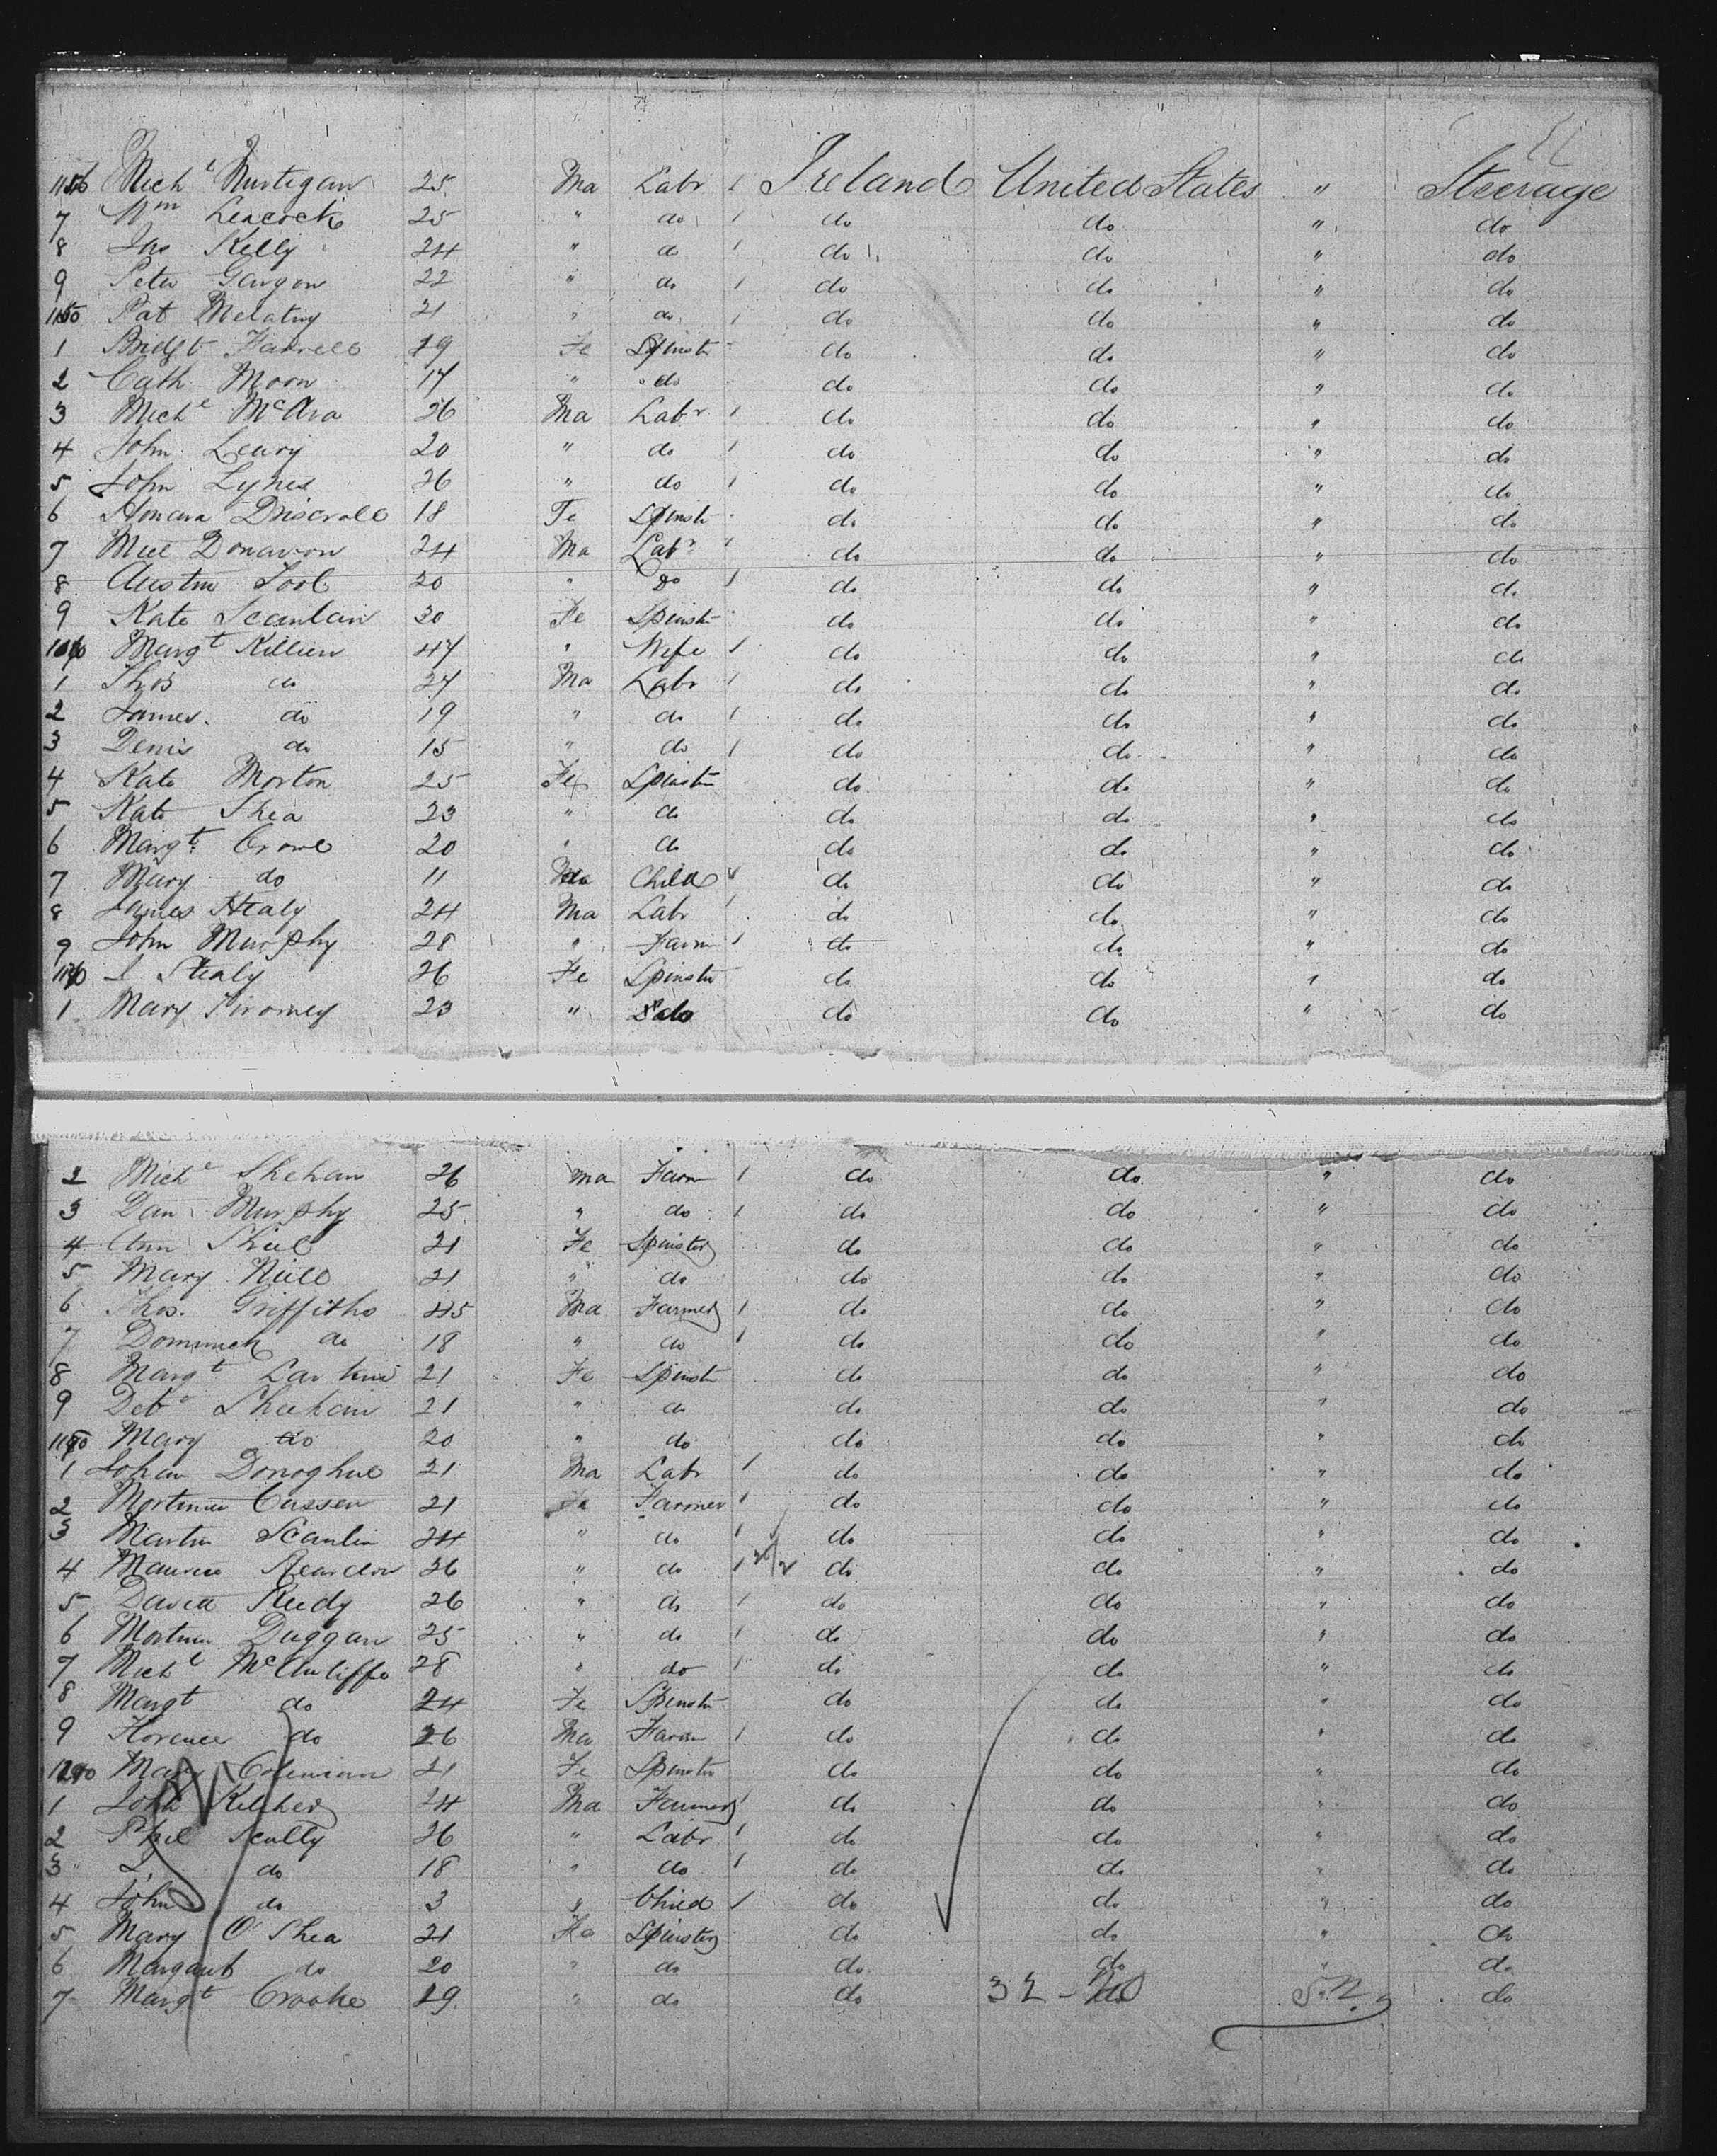 Mich l 25 Ma Labr / Ireland United States " Steerage
7 Wm Leacock 25 " do / do do " do
8 Jno Kelly 24 " do / do do " do
9 Peter 22 " do / do do " do
Pat 21 " do / do do " do
1 Bridgt Farrell 19 Fe Spinstr do do " do
2 Cath Moon 17 " do do do " do
3 Michl McAra 26 Ma Labr / do do " do
4 John Leary 20 " do / do do " do
5 John Lynes 26 " do / do do " do
6 Honara Driscroll 18 Fe Spinstr do do " do
7 Donavon 24 Ma Labr / do do " do
8 Austin Tool 20 " do / do do " do
9 Kate Scanlan 20 Fe Spinstr do do " do
Margt Killien 47 " Wife / do do " do
1 Thos do 27 Ma Labr / do do " do
2 James do 19 " do / do do " do
3 Denis do 15 " do / do do " do
4 Kate Morton 25 Fe Spinstr do do " do
5 Kate Shea 23 " do do do " do
6 Margt Crowe 20 " do do do " do
7 Mary do 11 Child do do " do
8 James Healy 24 Ma Labr / do do " do
9 John Murphy 28 " Farm / do do " do
26 Fe Spinstr do do " do
1 Mary 23 " do do do " do
2 Michl Shehan 26 Ma Farm / do do " do
3 Dan Murphy 25 " do / do do " do
4 Ann 21 Fe Spinster do do " do
5 Mary 21 " do do do " do
6 Thos. Griffiths 45 Ma Farmer / do do " do
7 Dominick do 18 " do / do do " do
8 Margt 21 Fe Spinstr do do " do
9 Debo Sheehan 21 " do do do " do
Mary do 20 " do do do " do
1 Johan Donoghue 21 Ma Labr / do do " do
2 Cussen 21 Farmer / do do " do
3 Martin Scanlin 24 " do / do do " do
4 Maurice Reardon 26 " do / do do " do
5 David 26 " do / do do " do
6 Duggan 25 " do / do do " do
7 Michl McAuliffe 28 " do / do do " do
8 Margt do 24 Fe Spinstr do do " do
9 Florence do 26 Ma Farm / do do " do
Mary Coleman 21 Fe Spinstr do do " do
1 John Kelcher 24 Ma Farmer / do do " do
2 Phil Scully 26 " Labr / do do " do
3 do 18 " do / do do " do
4 John do 3 " Child / do do " do
5 Mary O'Shea 21 Fe Spinster do do " do
6 Margaret do 20 " do do do " do
7 Margt Crooke 19 " do do do do